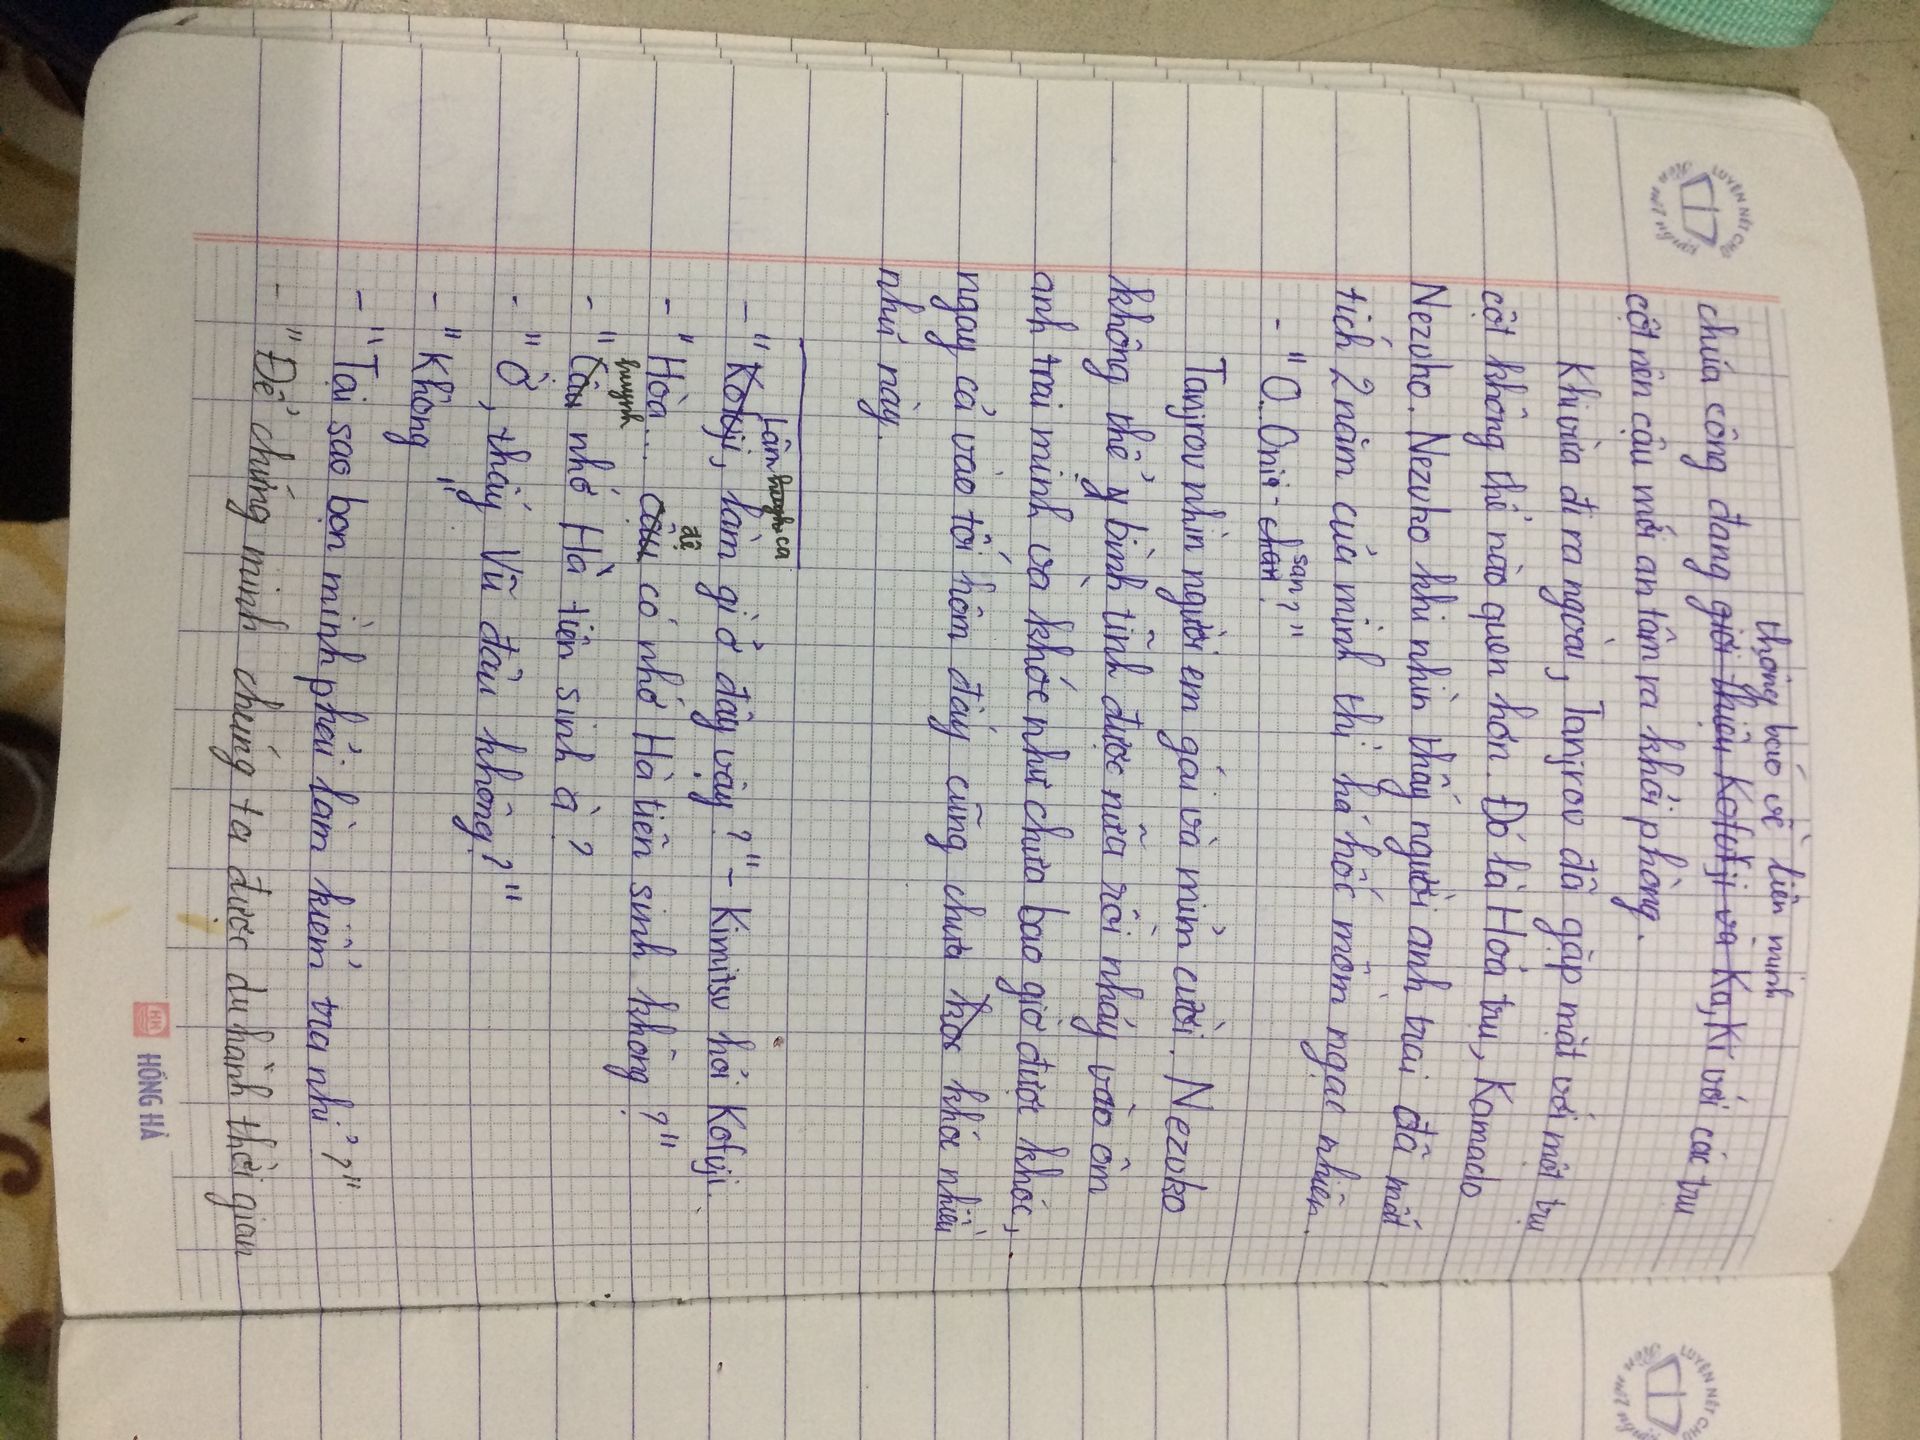 LUYỆN NÉT CHỮ
Rèn nết người
thông báo về liên minh
chúa công đang giới thiệu Kofuji và Kaki với các trụ
cột nên cậu mới an tâm ra khỏi phòng.
Khi vừa đi ra ngoài, Tanjirou đã gặp mặt với một trụ
cột không thể nào quen hơn. Đó là Hoả trụ, Kamado
Nezuko. Nezuko khi nhìn thấy người anh trai đã mất
tích 2 năm của mình thì há hốc mồm ngạc nhiên.
- "O..Onii-chan san?"
Tanjirou nhìn người em gái và mỉm cười. Nezuko
không thể bình tĩnh được nữa rồi nhảy vào ôm
anh trai mình và khóc như chưa bao giờ được khóc,
ngay cả vào tối hôm đấy cũng chưa khóc nhiều
như này.
Lâm ca
- "Kofuji, làm gì ở đây vậy?" - Kimitsu hỏi Kofuji.
đệ
- "Hòa... cậu có nhớ Hà tiên sinh không?"
huynh
- "Cậu nhớ Hà tiên sinh à?
- "Ờ, thầy Vũ đâu không?"
- "Không"
- "Tại sao bọn mình phải làm kiểm tra nhỉ?"
- "Để chứng minh chúng ta được du hành thời gian
HỒNG HÀ
LUYỆN NÉT CHỮ
Rèn nết người